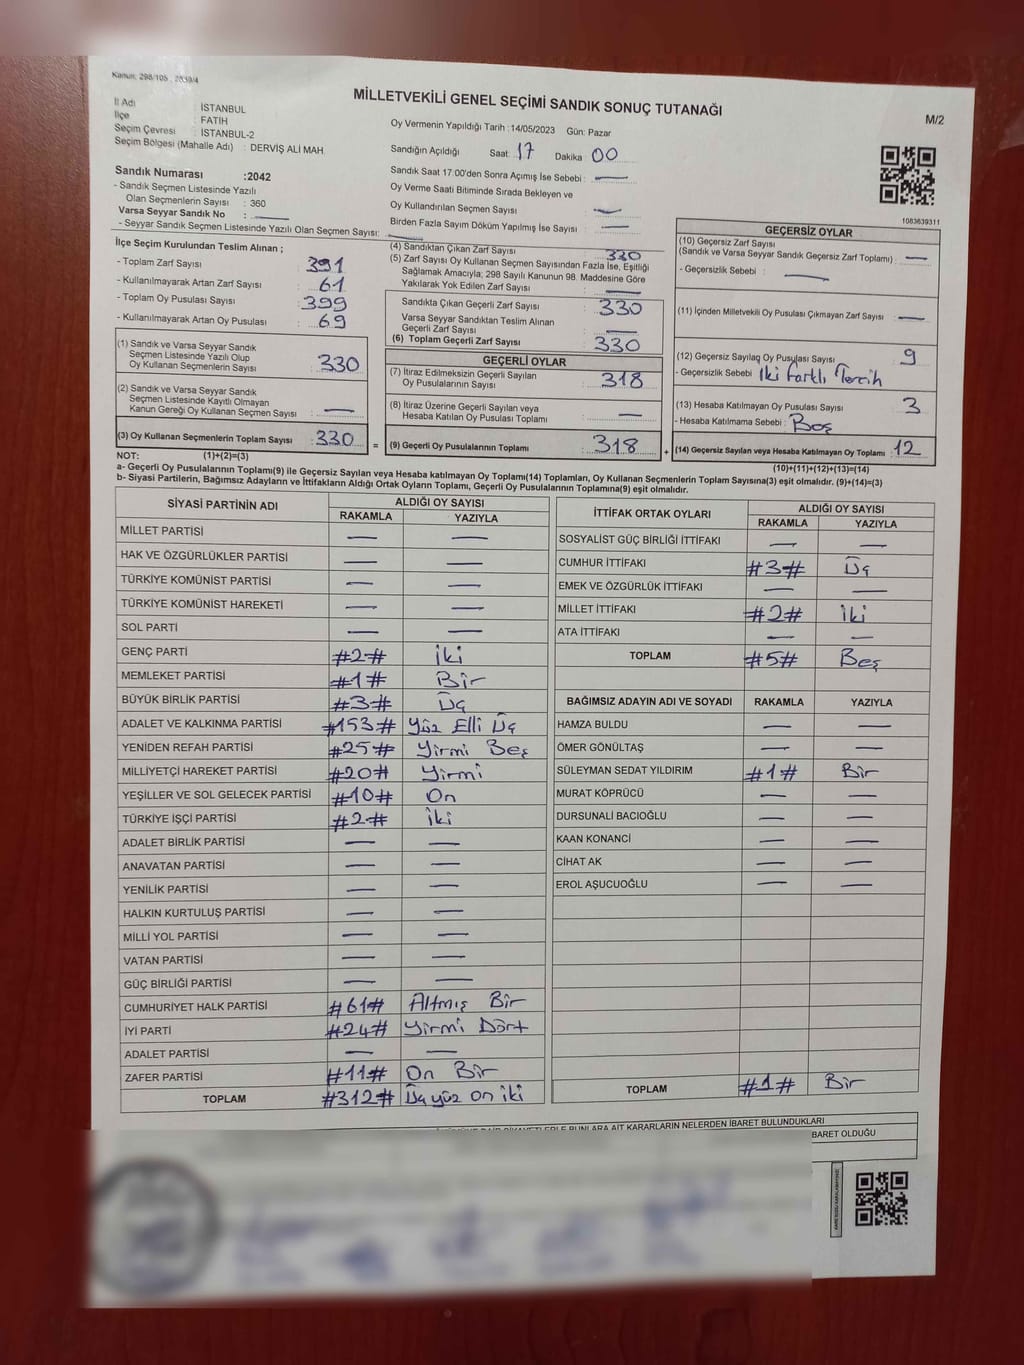 Kanun: 298/105 , 2839/4
MİLLETVEKİLİ GENEL SEÇİMİ SANDIK SONUÇ TUTANAĞI
M/2
İl Adı : İSTANBUL
İlçe : FATİH
Seçim Çevresi : İSTANBUL-2
Seçim Bölgesi (Mahalle Adı) : DERVİŞ ALİ MAH.
Oy Vermenin Yapıldığı Tarih : 14/05/2023 Gün: Pazar
Sandığın Açıldığı Saat: 17 Dakika 00
Sandık Saat 17:00'den Sonra Açımış İse Sebebi : —
Oy Verme Saati Bitiminde Sırada Bekleyen ve
Oy Kullandırılan Seçmen Sayısı : —
Birden Fazla Sayım Döküm Yapılmış İse Sayısı : —
1083639311
Sandık Numarası :2042
- Sandık Seçmen Listesinde Yazılı
Olan Seçmenlerin Sayısı : 360
Varsa Seyyar Sandık No : —
- Seyyar Sandık Seçmen Listesinde Yazılı Olan Seçmen Sayısı: —
İlçe Seçim Kurulundan Teslim Alınan ;
- Toplam Zarf Sayısı : 391
- Kullanılmayarak Artan Zarf Sayısı : 61
- Toplam Oy Pusulası Sayısı : 399
- Kullanılmayarak Artan Oy Pusulası : 69
(1) Sandık ve Varsa Seyyar Sandık
Seçmen Listesinde Yazılı Olup
Oy Kullanan Seçmenlerin Sayısı : 330
(2) Sandık ve Varsa Seyyar Sandık
Seçmen Listesinde Kayıtlı Olmayan
Kanun Gereği Oy Kullanan Seçmen Sayısı : —
(3) Oy Kullanan Seçmenlerin Toplam Sayısı : 330 =
(4) Sandıktan Çıkan Zarf Sayısı : 330
(5) Zarf Sayısı Oy Kullanan Seçmen Sayısından Fazla İse, Eşitliği
Sağlamak Amacıyla; 298 Sayılı Kanunun 98. Maddesine Göre
Yakılarak Yok Edilen Zarf Sayısı : —
Sandıkta Çıkan Geçerli Zarf Sayısı : 330
Varsa Seyyar Sandıktan Teslim Alınan
Geçerli Zarf Sayısı : —
(6) Toplam Geçerli Zarf Sayısı : 330
GEÇERLİ OYLAR
(7) İtiraz Edilmeksizin Geçerli Sayılan
Oy Pusulalarının Sayısı : 318
(8) İtiraz Üzerine Geçerli Sayılan veya
Hesaba Katılan Oy Pusulası Toplamı : —
(9) Geçerli Oy Pusulalarının Toplamı : 318 +
GEÇERSİZ OYLAR
(10) Geçersiz Zarf Sayısı
(Sandık ve Varsa Seyyar Sandık Geçersiz Zarf Toplamı) : —
- Geçersizlik Sebebi : —
(11) İçinden Milletvekili Oy Pusulası Çıkmayan Zarf Sayısı : —
(12) Geçersiz Sayılaq Oy Pusulası Sayısı : 9
- Geçersizlik Sebebi İki Farklı Tercih
(13) Hesaba Katılmayan Oy Pusulası Sayısı : 3
- Hesaba Katılmama Sebebi : Boş
(14) Geçersiz Sayılan veya Hesaba Katılmayan Oy Toplamı : 12
NOT: (1)+(2)=(3) (10)+(11)+(12)+(13)=(14)
a- Geçerli Oy Pusulalarının Toplamı(9) ile Geçersiz Sayılan veya Hesaba katılmayan Oy Toplamı(14) Toplamları, Oy Kullanan Seçmenlerin Toplam Sayısına(3) eşit olmalıdır. (9)+(14)=(3)
b- Siyasi Partilerin, Bağımsız Adayların ve İttifakların Aldığı Ortak Oyların Toplamı, Geçerli Oy Pusulalarının Toplamına(9) eşit olmalıdır.
SİYASİ PARTİNİN ADI ALDIĞI OY SAYISI
RAKAMLA YAZIYLA
MİLLET PARTİSİ — —
HAK VE ÖZGÜRLÜKLER PARTİSİ — —
TÜRKİYE KOMÜNİST PARTİSİ — —
TÜRKİYE KOMÜNİST HAREKETİ — —
SOL PARTİ — —
GENÇ PARTİ #2# İki
MEMLEKET PARTİSİ #1# Bir
BÜYÜK BİRLİK PARTİSİ #3# Üç
ADALET VE KALKINMA PARTİSİ #153# Yüz Elli Üç
YENİDEN REFAH PARTİSİ #25# Yirmi Beş
MİLLİYETÇİ HAREKET PARTİSİ #20# Yirmi
YEŞİLLER VE SOL GELECEK PARTİSİ #10# On
TÜRKİYE İŞÇİ PARTİSİ #2# İki
ADALET BİRLİK PARTİSİ — —
ANAVATAN PARTİSİ — —
YENİLİK PARTİSİ — —
HALKIN KURTULUŞ PARTİSİ — —
MİLLİ YOL PARTİSİ — —
VATAN PARTİSİ — —
GÜÇ BİRLİĞİ PARTİSİ — —
CUMHURİYET HALK PARTİSİ #61# Altmış Bir
İYİ PARTİ #24# Yirmi Dört
ADALET PARTİSİ — —
ZAFER PARTİSİ #11# On Bir
TOPLAM #312# Üçyüz on iki
İTTİFAK ORTAK OYLARI ALDIĞI OY SAYISI
RAKAMLA YAZIYLA
SOSYALİST GÜÇ BİRLİĞİ İTTİFAKI — —
CUMHUR İTTİFAKI #3# Üç
EMEK VE ÖZGÜRLÜK İTTİFAKI — —
MİLLET İTTİFAKI #2# İki
ATA İTTİFAKI — —
TOPLAM #5# Beş
BAĞIMSIZ ADAYIN ADI VE SOYADI RAKAMLA YAZIYLA
HAMZA BULDU — —
ÖMER GÖNÜLTAŞ — —
SÜLEYMAN SEDAT YILDIRIM #1# Bir
MURAT KÖPRÜCÜ — —
DURSUNALİ BACIOĞLU — —
KAAN KONANCİ — —
CİHAT AK — —
EROL AŞUCUOĞLU — —
TOPLAM #1# Bir
BUNLARA AİT KARARLARIN NELERDEN İBARET BULUNDUKLARI
İBARET OLDUĞU